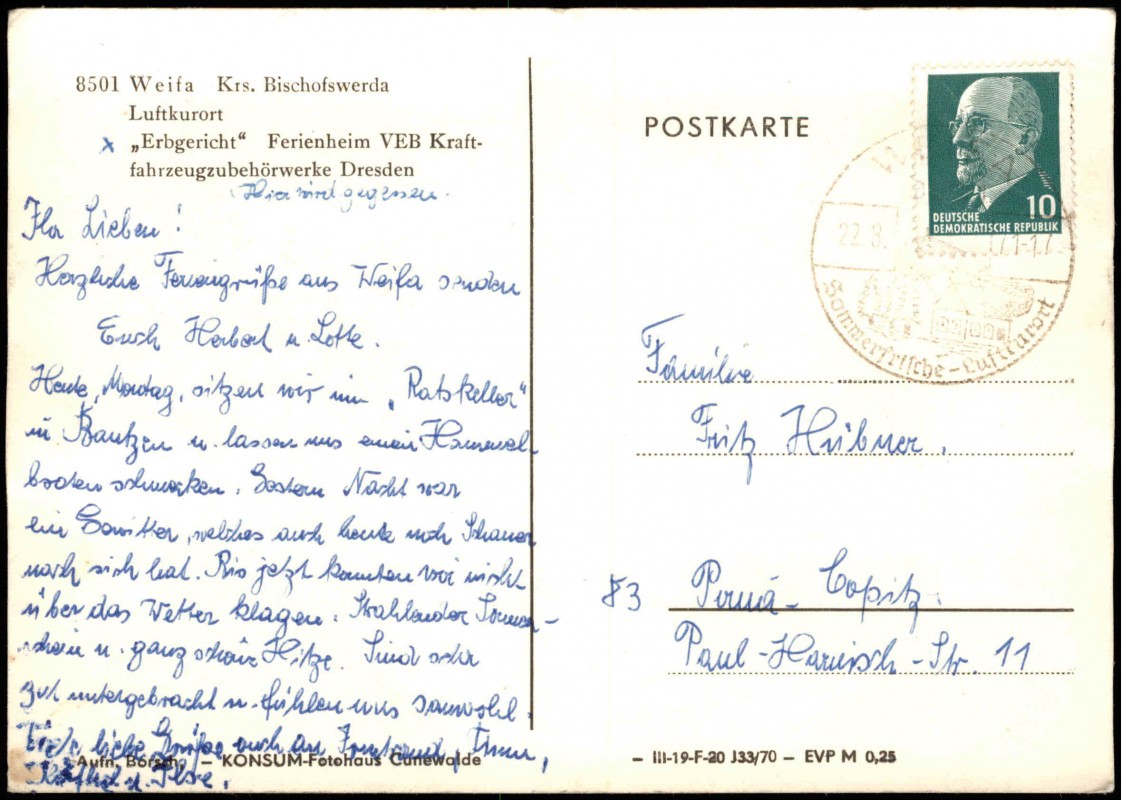 8501 Weifa Krs. Bischofswerda
Luftkurort
x „Erbgericht“ Ferienheim VEB Kraft-
fahrzeugzubehörwerke Dresden
(Hier wird gegessen.
Ihr Lieben!
Herzliche Feriengrüße aus Weifa senden
Euch Herbert u. Lotte.
Heute, Montag, sitzen wir im „Ratskeller“
in Bautzen u. lassen uns einen Hammel-
braten schmecken. Gestern Nacht war
ein Gewitter, welches auch heute noch Schauer
nach sich hat. Bis jetzt konnten wir nicht
über das Wetter klagen. Strahlender Sonnen-
schein u. ganz schöne Hitze. Sind sehr
gut untergebracht u. fühlen uns sauwohl.
liebe Grüße auch an
u. Ilse.
Aufn. Börsch – KONSUM-Fotohaus Cunewalde
POSTKARTE
DEUTSCHE
DEMOKRATISCHE REPUBLIK
10
22.8. 71-17
Sommerfrische - Luftkurort
Familie
Fritz Hübner.
83 Pirna - Copitz.
Paul-Harnisch-Str. 11
– III-19-F-20 J33/70 – EVP M 0,25